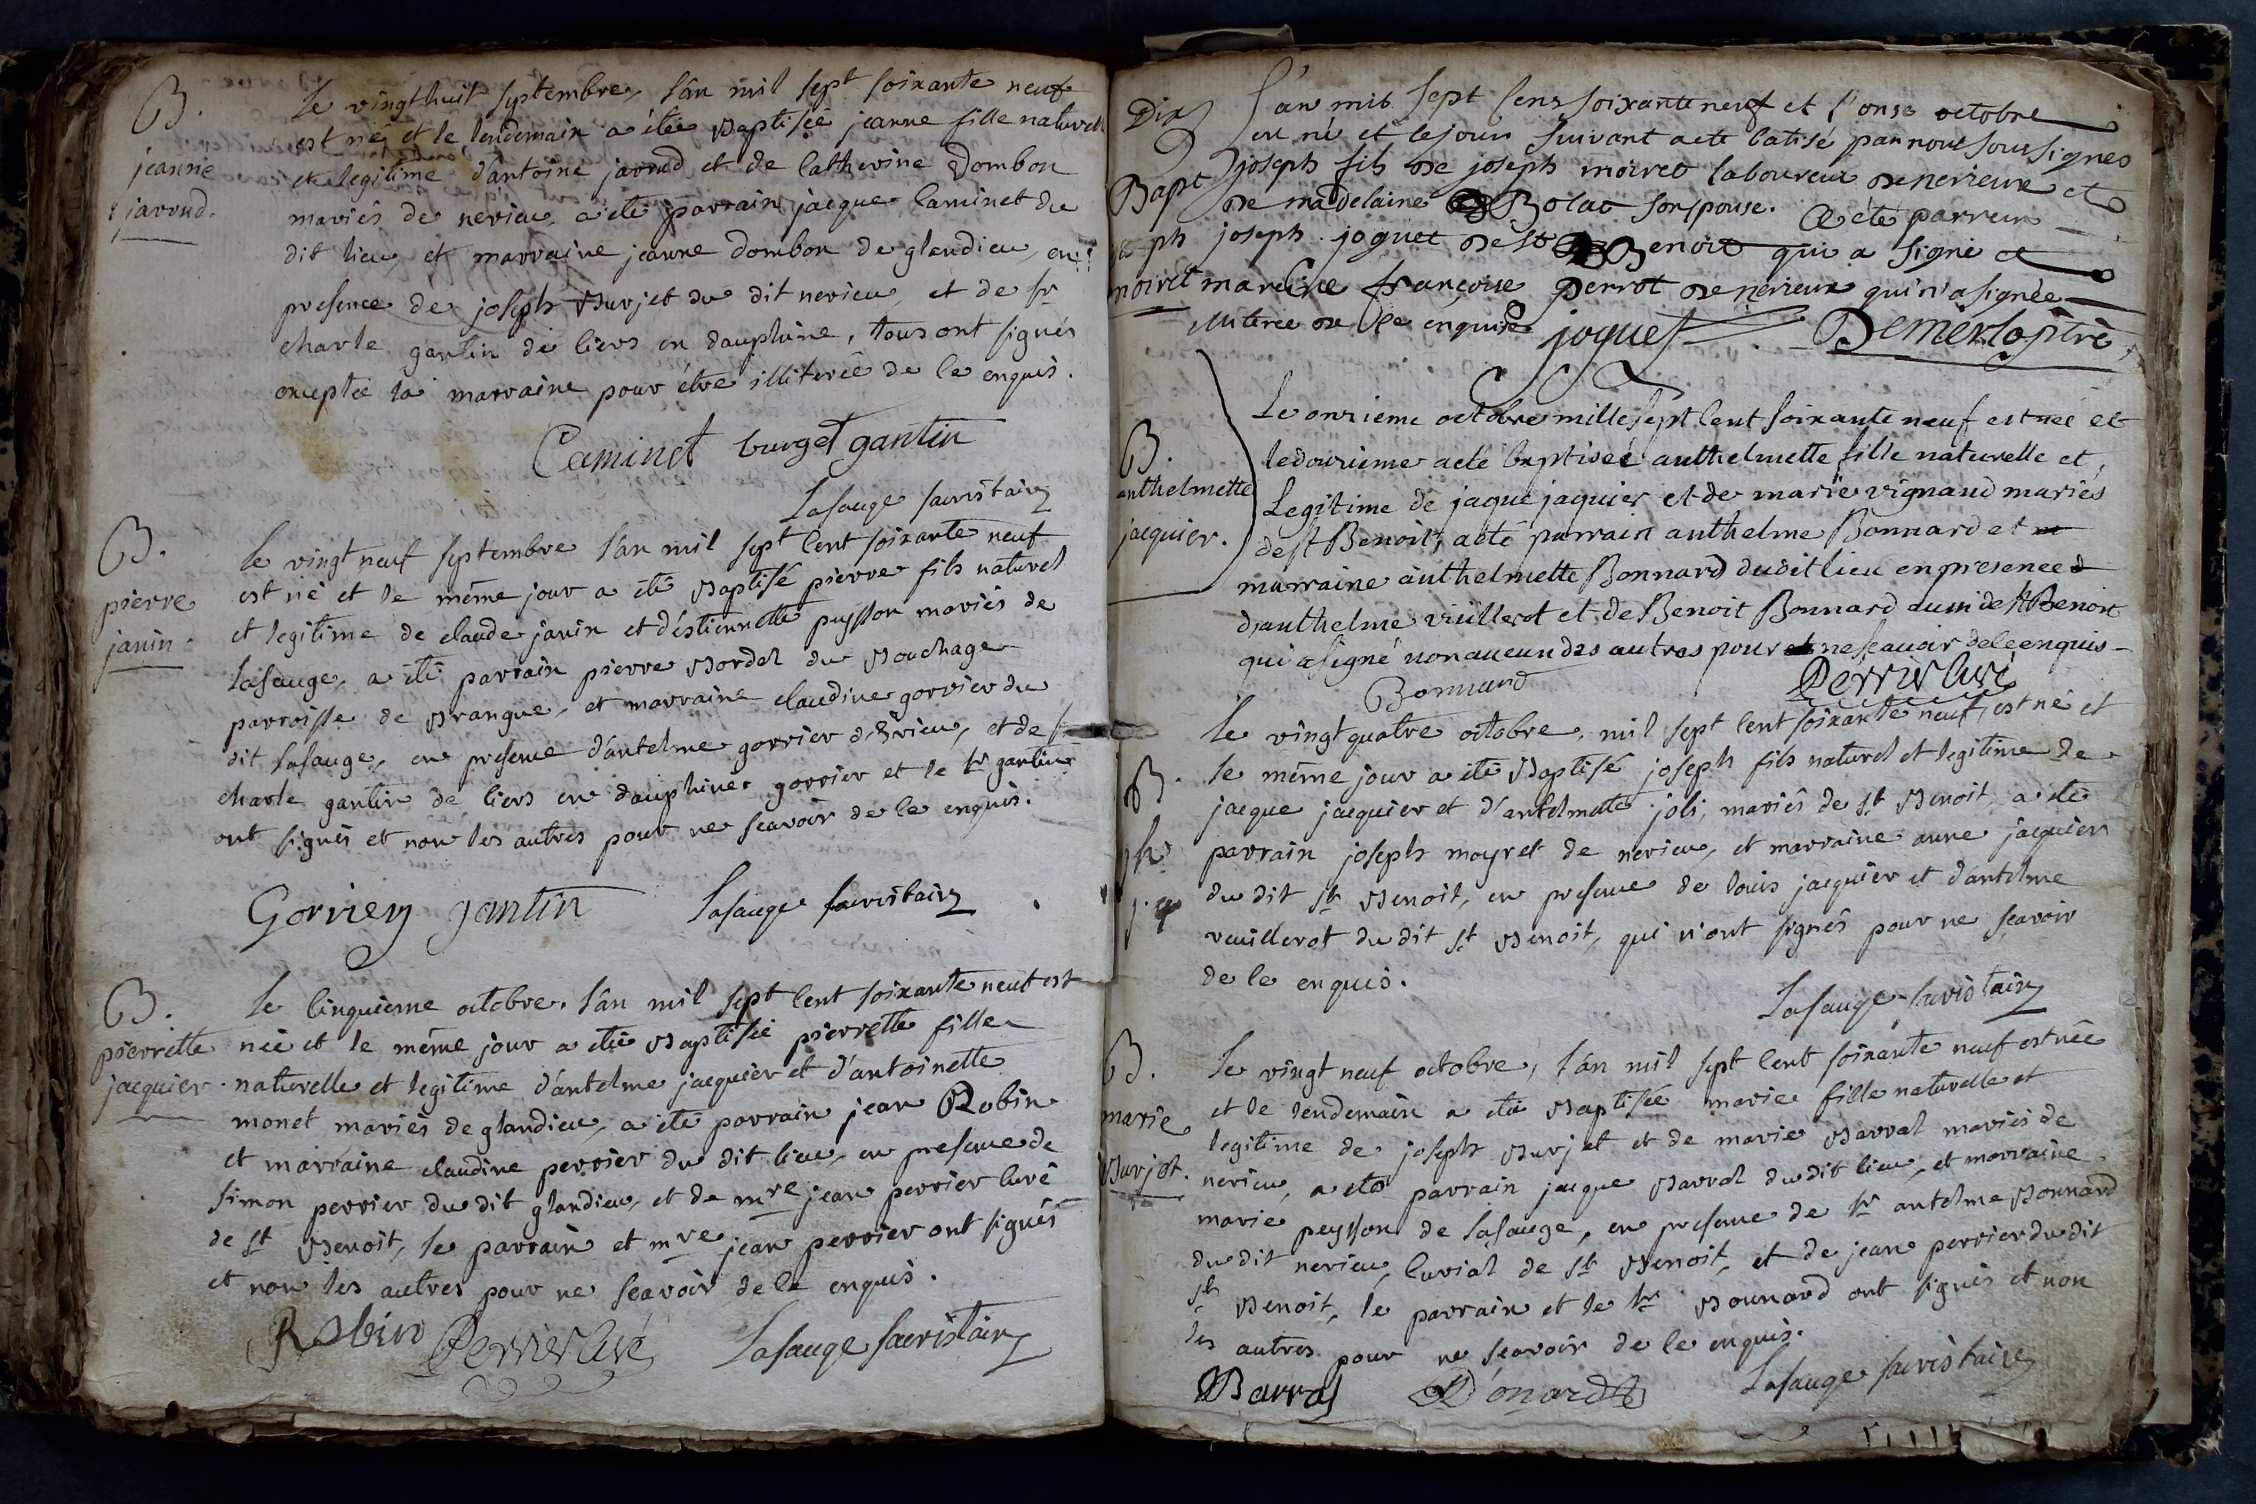 B.
jeanne
javoud.
le vingt huit septembre, l'an mil sept soixante neuf
est née et le lendemain a étée Baptisée jeanne fille naturelle
et legitime d'antoine javoud et de Catherine Dombon
mariés de nerieu, a été parrain jacque Caminet du
dit lieu, et marraine jeanne dombon de glandieu, en
presence de joseph Burjet du dit nerieu, et de sr
charle gantin de liers en dauphine, tous ont signés
exceptée la marraine pour étre illiterée de ce enquis.
Caminet burget gantin
Lasauge sacristain
B.
pierre
janin.
le vingt neuf septembre l'an mil sept cent soixante neuf
est né et le même jour a été Baptisé pierre fils naturel
et legitime de claude janin et d'éstiennette puysson mariés de
lasauge, a été parrain pierre Bordel du Bouchage
parroisse de Brangue, et marraine claudine gorrier du
dit lasauge, en presence d'antelme gorrier d'
charle gantin de liers en dauphiné gorrier et le sr gantin
ont signés et non les autres pour ne scavoir de ce enquis.
Gorrier gantin Lasauge sacristain
B.
pierrette
jacquier.
le Cinquieme octobre. l'an mil sept Cent soixante neuf est
née et le même jour a étée Baptisée pierrette fille
naturelle et legitime d'antelme jacquier et d'antoinette
monet mariés de glandieu, a été parrain jean Robin
et marraine claudine perrier du dit lieu, en presence de
simon perrier du dit glandieu, et de mre jean perrier Curé
de st Benoit, le parrain et mre jean perrier ont signés
et non les autres pour ne scavoir de ce enquis.
Robin Perrier Curé Lasauge sacristain
Dix
Bapt
ph
moiret
l'an mil sept Cens soixante neuf et l'onse octobre
né et le jour suivant a eté batisé par nous sousignes
joseph fils de joseph moiret laboureur de nerieux et
de madelaine Bolac son pouse. a été parrein
joseph joguet de st Benoit qui a signé et
mareine françoise perrot de nerieux qui n'a signée
illiteree de ce enquise joguet Demerloz ptre
B.
anthelmette
jacquier.
Le onzieme octobre mille sept Cent soixante neuf est née et
le douzieme a eté baptisée anthelmette fille naturelle et
Legitime de jaque jaquier et de marie vignand mariés
de st Benoit, a eté parrain anthelme Bonnard et
marraine anthelmette Bonnard dudit lieu en presence
d'anthelme viullerot et de Benoit Bonnard aussi de st Benoit
qui a signé non aucun des autres pour ne scavoir de ce enquis
Bonnard Perrier Curé
B.
ph
le vingt quatre octobre, mil sept Cent soixante neuf, est né et
le même jour a été Baptisé joseph fils naturel et legitime de
jacque jacquier et d'antelmette joli, mariés de st Benoit, a été
parrain joseph moyret de nerieu, et marraine anne jacquier
du dit st Benoit, en presence de louis jacquier et d'antelme
veuillerot du dit st Benoit, qui n'ont signés pour ne scavoir
de ce enquis.
Lasauge sacristain
B.
marie
Burjet.
le vingt neuf octobre, l'an mil sept Cent soixante neuf est née
et le lendemain a étée Baptisée marie fille naturelle et
legitime de joseph Burjet et de marie Barral mariés de
nerieu, a eté parrain jacque Barral du dit lieu, et marraine
marie peysson de lasauge, en presence de sr antelme Bonnard
du dit nerieu, Curial de st Benoit, et de jean perrier du dit
st Benoit, le parrain et le sr Bonnard ont signés et non
les autres pour ne scavoir de ce enquis.
Barral Bonard Lasauge sacristain